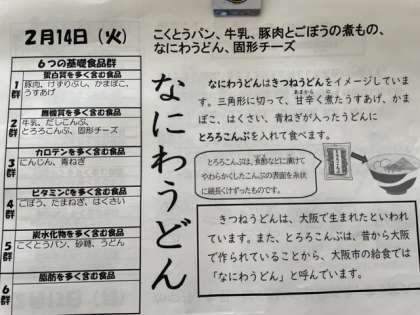 2月14日（火）
こくとうパン、牛乳、豚肉とごぼうの煮もの、
なにわうどん、固形チーズ
6つの基礎食品群
1群
蛋白質を多く含む食品
豚肉、けずりぶし、かまぼこ、
うすあげ
2群
無機質を多く含む食品
牛乳、だしこんぶ、
とろろこんぶ、固形チーズ
3群
カロテンを多く含む食品
にんじん、青ねぎ
4群
ビタミンCを多く含む食品
ごぼう、たまねぎ、はくさい
5群
炭水化物を多く含む食品
こくとうパン、砂糖、うどん
6群
脂肪を多く含む食品
なにわうどん
なにわうどんはきつねうどんをイメージしていま
す。三角形に切って、甘辛く煮たうすあげ、かま
あまから に
ぼこ、はくさい、青ねぎが入ったうどんに
とろろこんぶを入れて食べます。
とろろこんぶは、食酢などに漬けて
やわらかくしたこんぶの表面を糸状
に細長くけずったものです。
きつねうどんは、大阪で生まれたといわれ
ています。また、とろろこんぶは、昔から大阪
で作られていることから、大阪市の給食では
「なにわうどん」と呼んでいます。